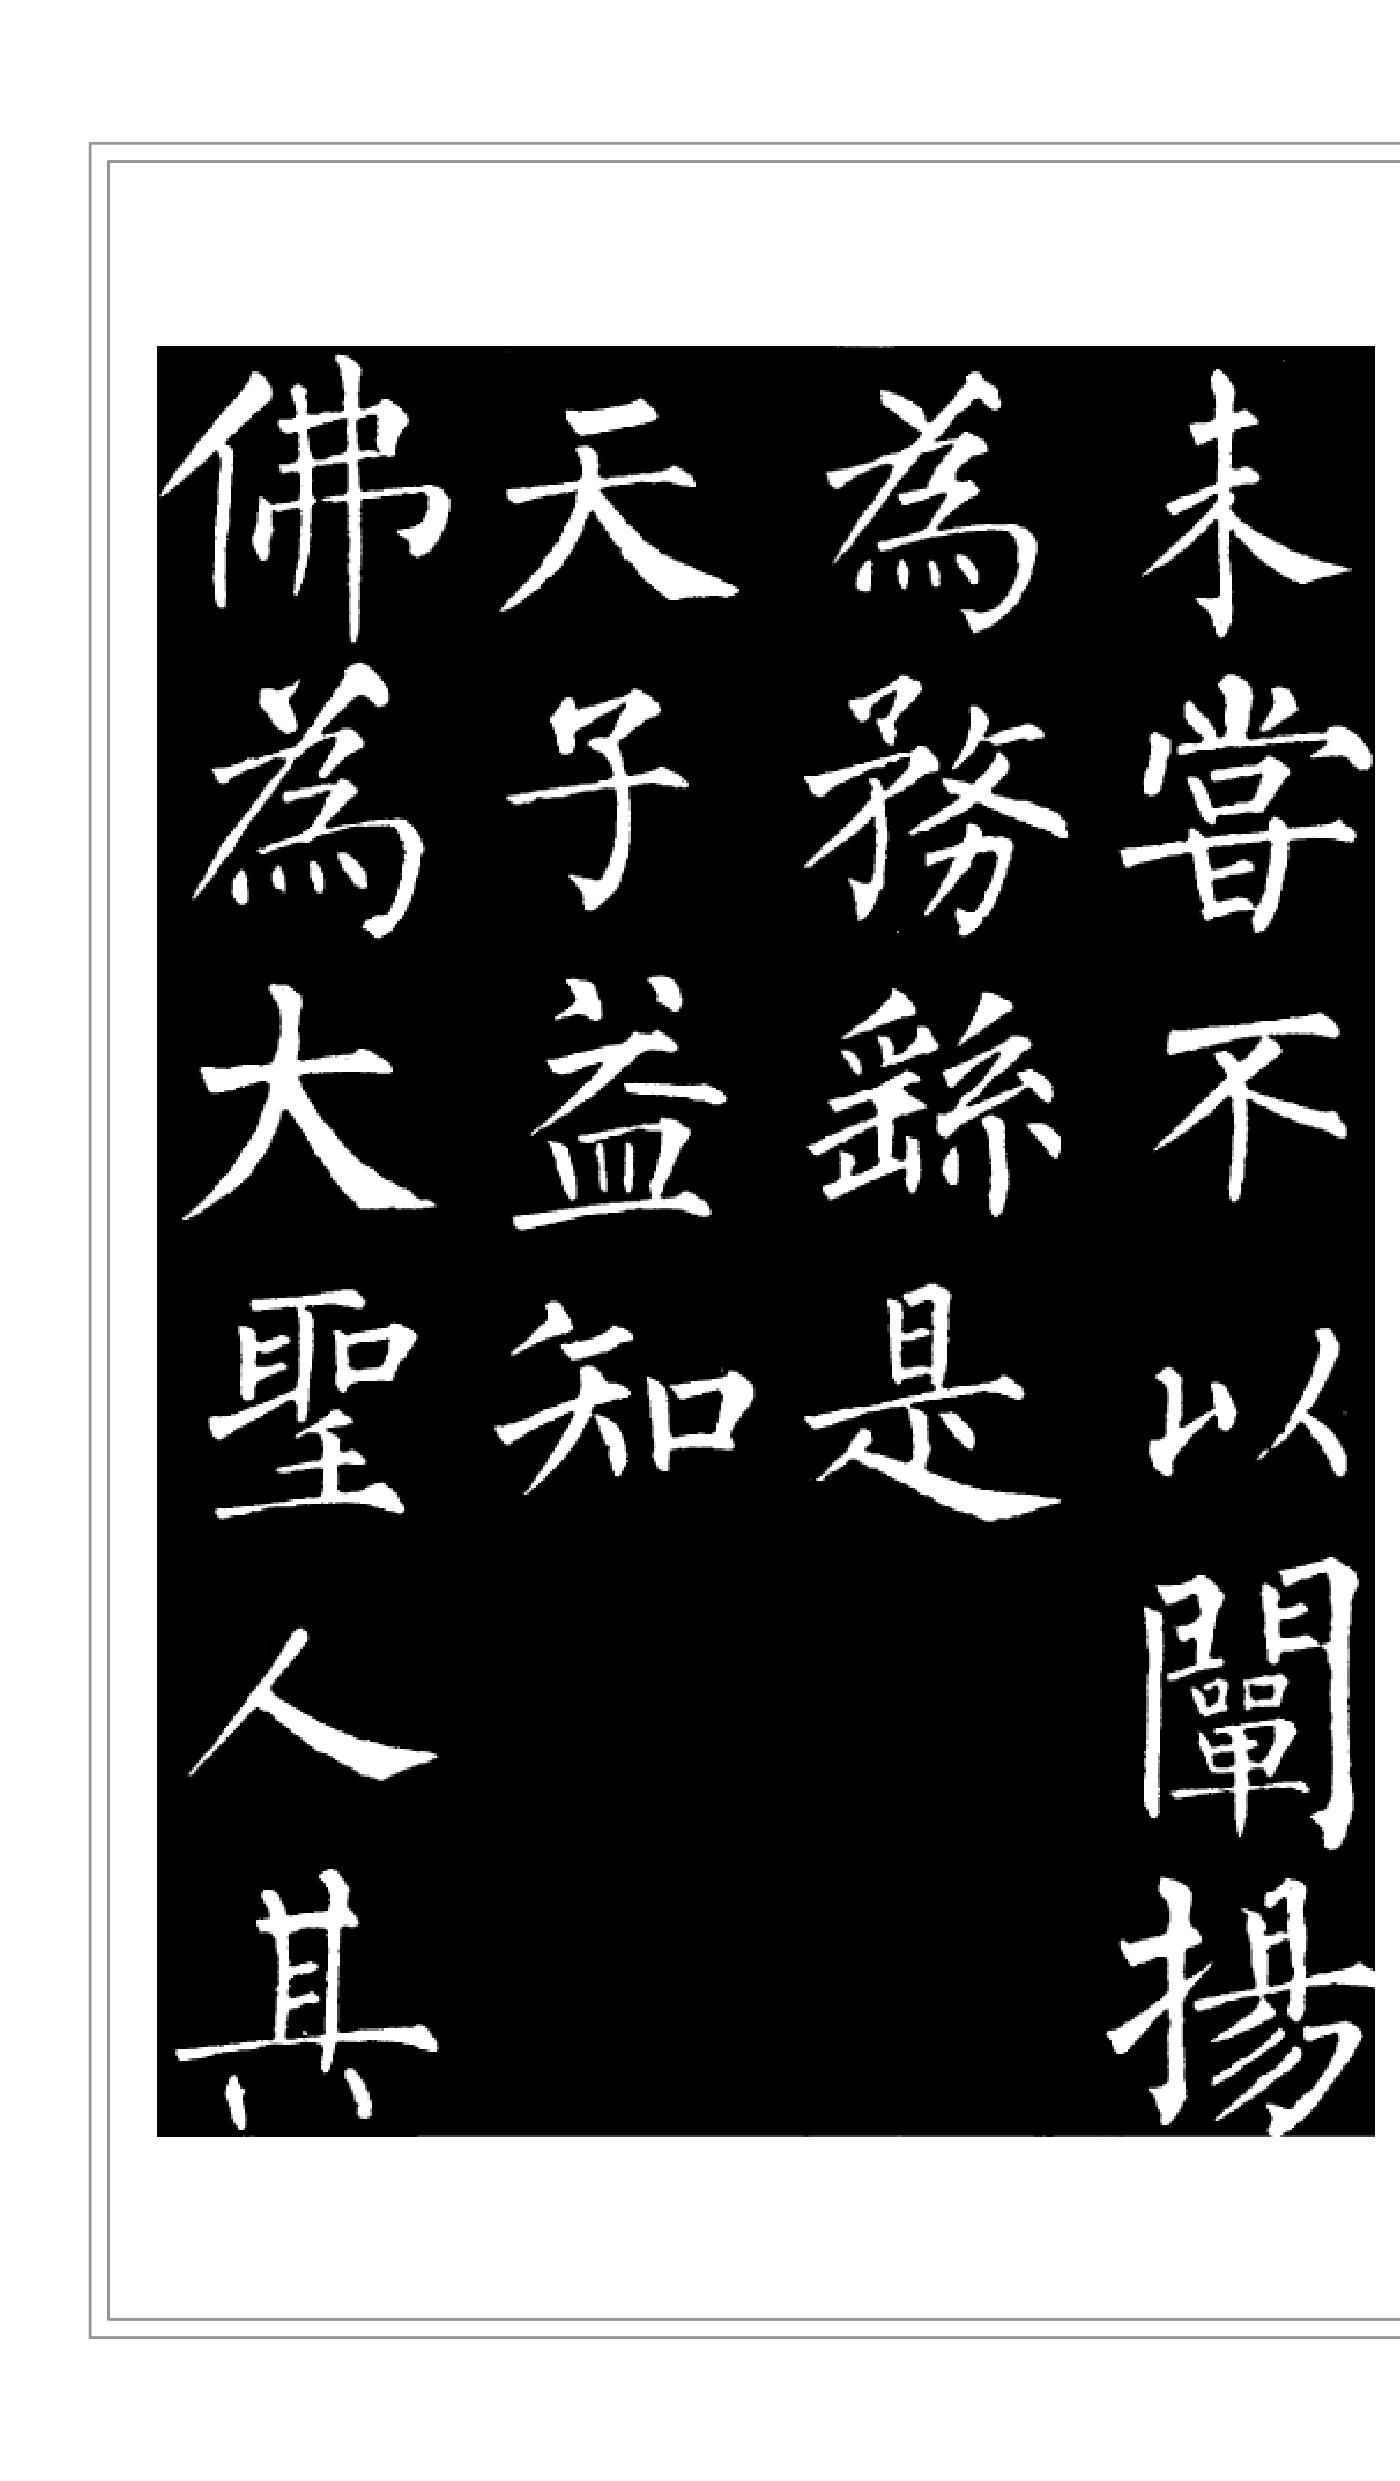 未嘗不以闡揚
為務繇是
天子益知
佛為大聖人其